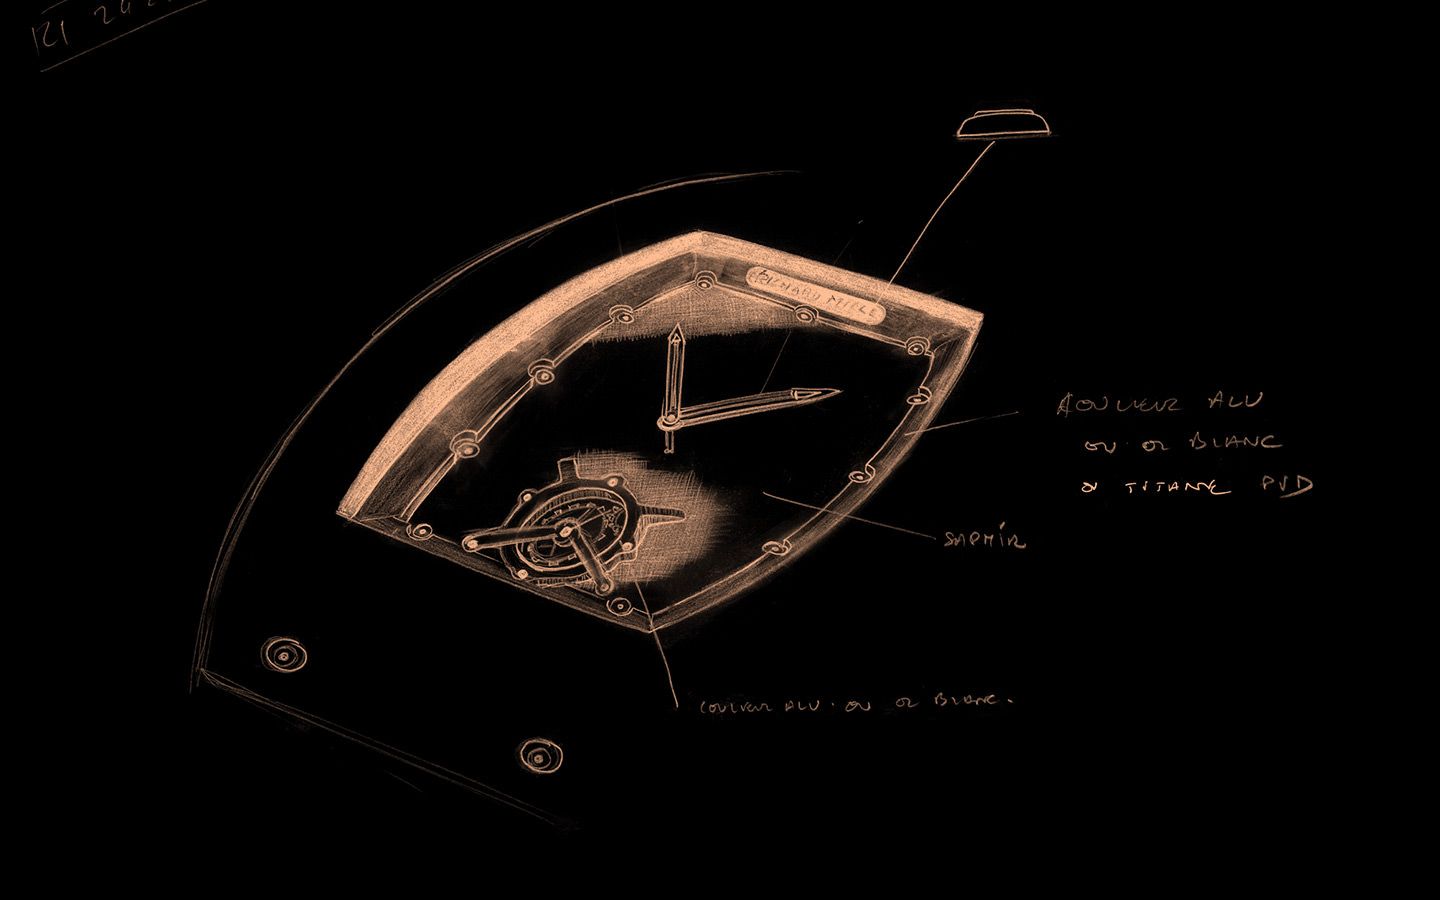 RICHARD MILLE
COULEUR ALU
OU OR BLANC
OU TITANE PVD
SAPHIR
COULEUR ALU. OU OR BLANC.